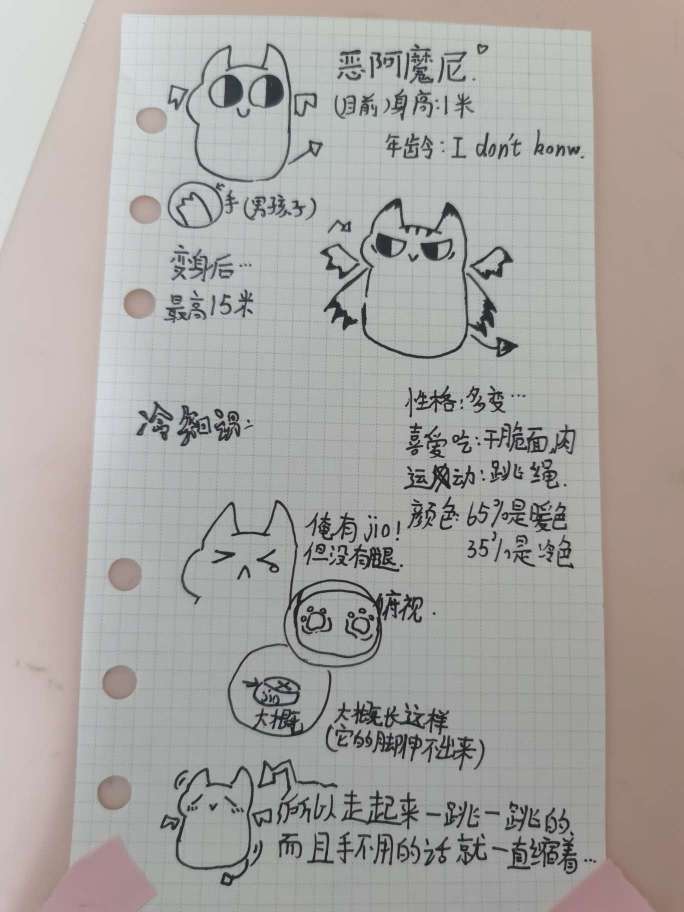 恶阿魔尼.
(目前)身高:1米
年龄:I don't konw.
手(男孩子)
变身后…
最高15米
性格:多变…
喜爱吃:干脆面,肉
运动:跳绳.
颜色:65%是暖色
35%是冷色
冷知识:
俺有jio!
但没有腿.
俯视.
jio
大概
大概长这样
(它的脚伸不出来)
所以走起来一跳一跳的,
而且手不用的话就一直缩着…